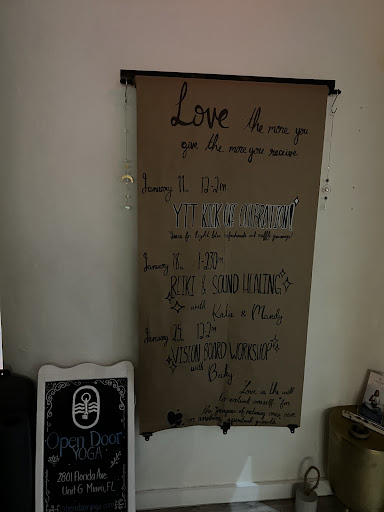 Love the more you
give the more you receive
January 11. 12-2pm
YTT KICK OFF CELEBRATION!
January 18. 1-230pm
REIKI & SOUND HEALING
with Katie & Mandy
January 25. 12-2pm
VISION BOARD WORKSHOP
with Baky
Love is the will
to extend oneself for
the purpose of nurturing ones own
or anothers spiritual growth.
Open Door
YOGA
2801 Florida Ave
Unit G Miami, FL